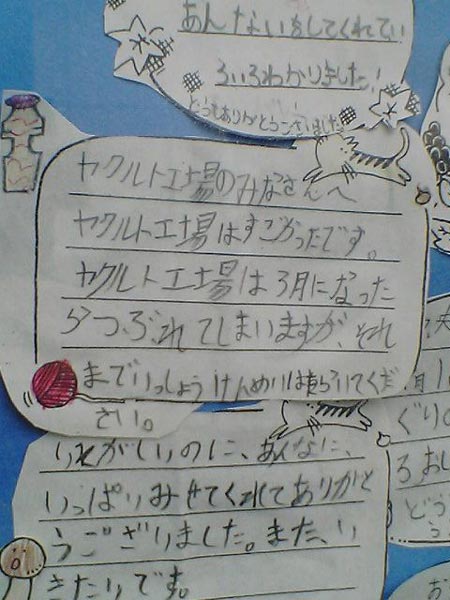 あんないをしてくれてい
ろいろわかりました!
どうもありがとうございました。
ヤクルト工場のみなさんへ
ヤクルト工場はすごかったです。
ヤクルト工場は3月になった
らつぶれてしまいますが、それ
までいっしょうけんめいはたらいてくだ
さい。
いそがしいのに、あんなに、
いっぱいみせてくれてありがと
うございました。また、い
きたいです。
ぐりの
ろおし
どう